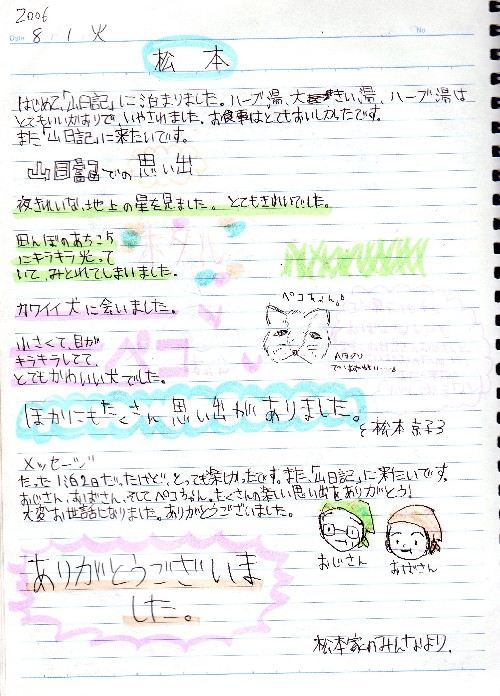 2006
Date 8 1 火
No
松本
はじめて「山日記」に泊まりました。ハーブ湯、大きい湯、ハーブ湯は
とてもいいかおりで、いやされました。お食事はとてもおいしかったです。
また「山日記」に来たいです。
山日記での思い出
夜きれいな地上の星を見ました。とてもきれいでした。
田んぼのあちこち
にキラキラ光って
いて、みとれてしまいました。
ホタル
カワイイ犬に会いました。
ペコちゃん。
小さくて、目が
キラキラしてて、
とてもかわいい犬でした。
ペコ
ほかにもたくさん思い出がありました。
と松本京子
メッセージ
たった1泊2日だったけど、とっても楽しかったです。また、「山日記」に来たいです。
おじさん、おばさん、そしてペコちゃん。たくさんの楽しい思い出をありがとう!
大変お世話になりました。ありがとうございました。
おじさん
おばさん
ありがとうございま
した。
松本家のみんなより。